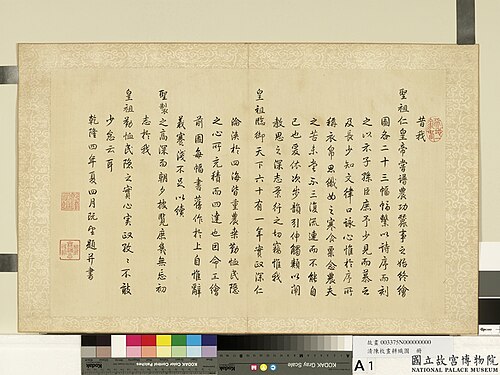 昔我
聖祖仁皇帝嘗譜農功蠶事之始終繪
圖各二十三幅幅繫以詩序而刊
之以示子孫臣庶予少見而慕云
及長少知文律口詠心惟於序所
稱衣帛思織女之寒食粟念農夫
之苦未嘗不三復流連而不能自
已也爰依次步韻引伸觸類以闡
教思之深志景行之切竊惟我
皇祖臨御天下六十有一年實政深仁
淪浹於四海皆重農桑勤恤民隱
之心所充積而四達也因命工繪
前圖每幅書舊作於上自惟辭
義蹇淺不足以續
聖製之高深而朝夕披覽庶幾無忘初
志於我
皇祖勤恤民隱之實心實政孜孜不敢
少怠云耳
乾隆四年夏四月既望題并書
故畫 003375N000000000
清陳枚畫耕織圖 冊
A 1
KODAK Gray Scale
國立故宮博物院
NATIONAL PALACE MUSEUM